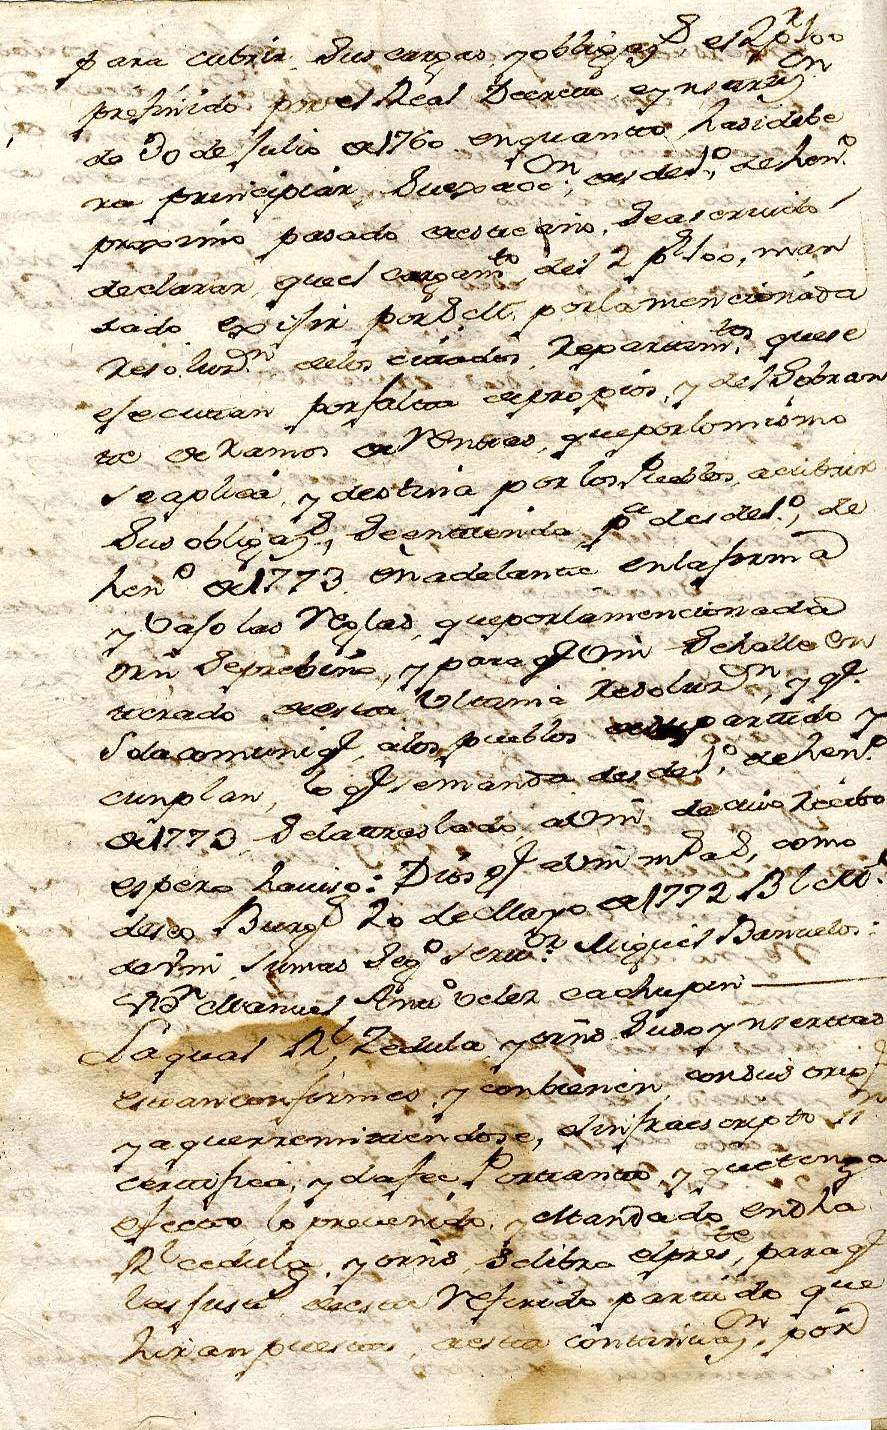 para cubrir sus cargas, y obligaz.s el 2 p.r 100
prefinido por el Real Decreto, e ynstruz.on
de 30 de Julio de 1760. en quanto, ha si debe
ra principiar, su exacc.on, desde 1.o, de hen.o
proximo pasado de este año, se a servido
declarar, que el cargam.to, del 2 p.r 100, man
dado exijir por S. M. por la mencionada
Resoluz.n de los citados, Repartim.tos, que se
ejecutan por falta de propios, y del Sobran
te de Ramos de Rentas, que por lo mismo
se aplica, y destina por los Pueblos, a cubrir
sus obligaz.s, se entienda p.a desde 1.o, de
hen.o de 1773. en adelante en la forma
y vajo las Reglas, que por la mencionada
orn se prebino, y para q.e Vm se halle en
terado de esta Ultima Resoluz.on, y q.e
se la comuniq.e, a los pueblos de su partido y
cumplan, lo q.e se manda desde 1.o, de hen.o
de 1773, se la traslado, a Vm de cuio Recibo
espero haviso: Dios g.e a Vm m.s a.s, como
deseo Burg.s 20 de Mayo de 1772 B l M.
de Vm, su mas seg.o serv.or Miguel Bañuelos:
S.or Manuel Anto.o Velez Cachupin
La qual R.l, Zedula, y orns suso ynsertas
estan conformes, y combienen, con sus orig.s
y a que rremitiendose, el infraescripto
certifica, y da fee Por tanto, y que tenga
efecto lo prevenido, y Mandado en dha
R.l cedula, y orns, se libra el pres.te, para q.e
las Just.s de este referido partido que
hiran puestas, a esta continuaz.on, por